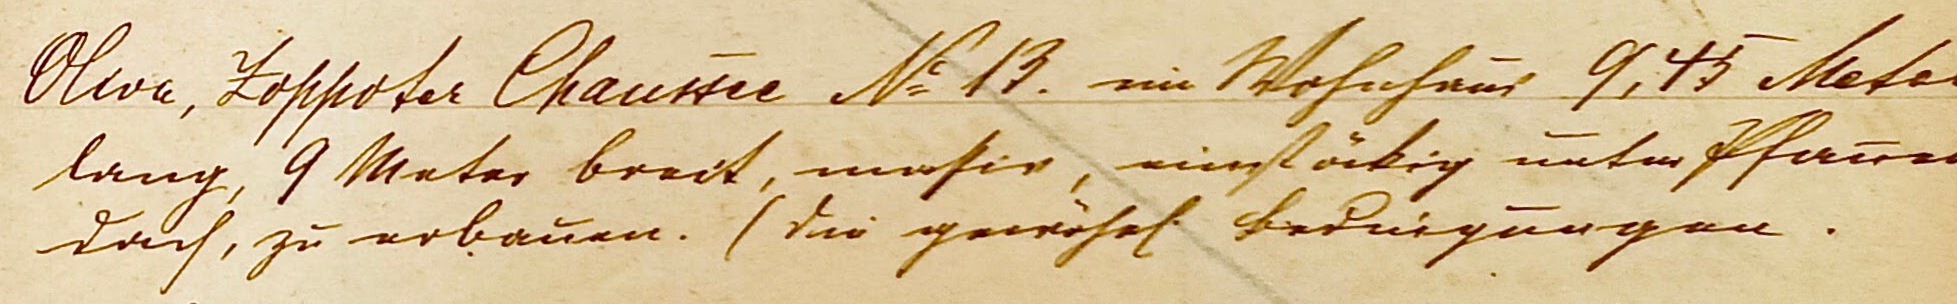 Oliva, Zoppoter Chaussee № 13. ein Wohnhaus 9,45 Meter
lang, 9 Meter breit, massiv, einstöckig unter Pfannen
dach, zu erbauen. (Die gewöhnl. Bedingungen.